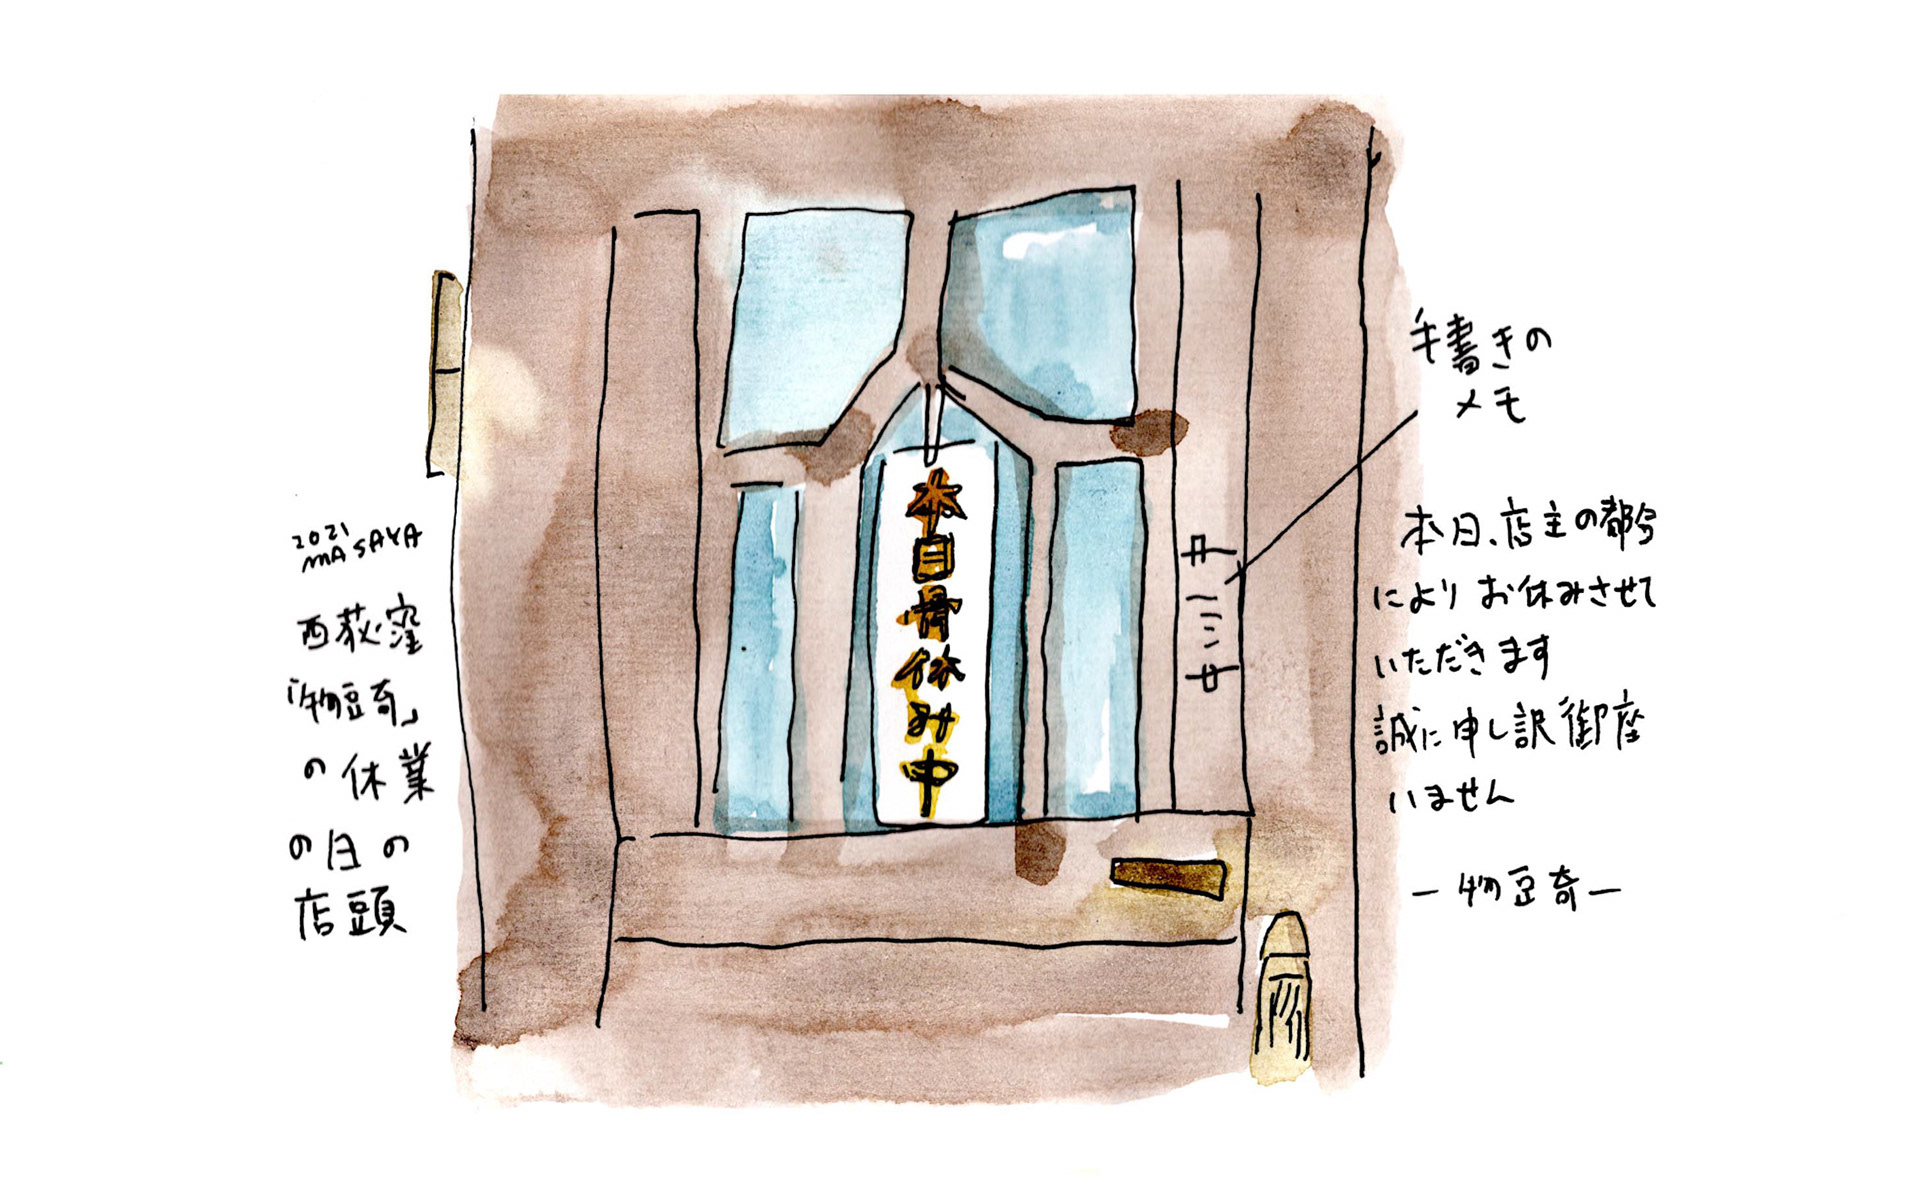 2021
MASAYA
西荻窪
「物豆奇」
の休業
の日の
店頭
本日骨休み中
手書きの
メモ
本日、店主の都合
により お休みさせて
いただきます
誠に申し訳御座
いません
— 物豆奇 —